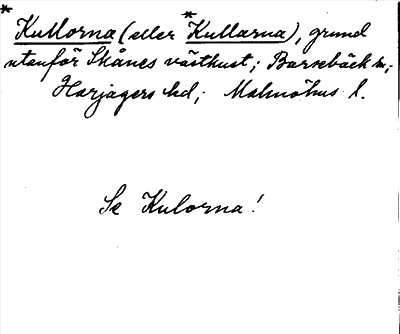 *Kullorna (eller *Kullarna), grund
utanför Skånes västkust; Barsebäck sn;
Harjagers hd; Malmöhus l.
Se Kulorna!